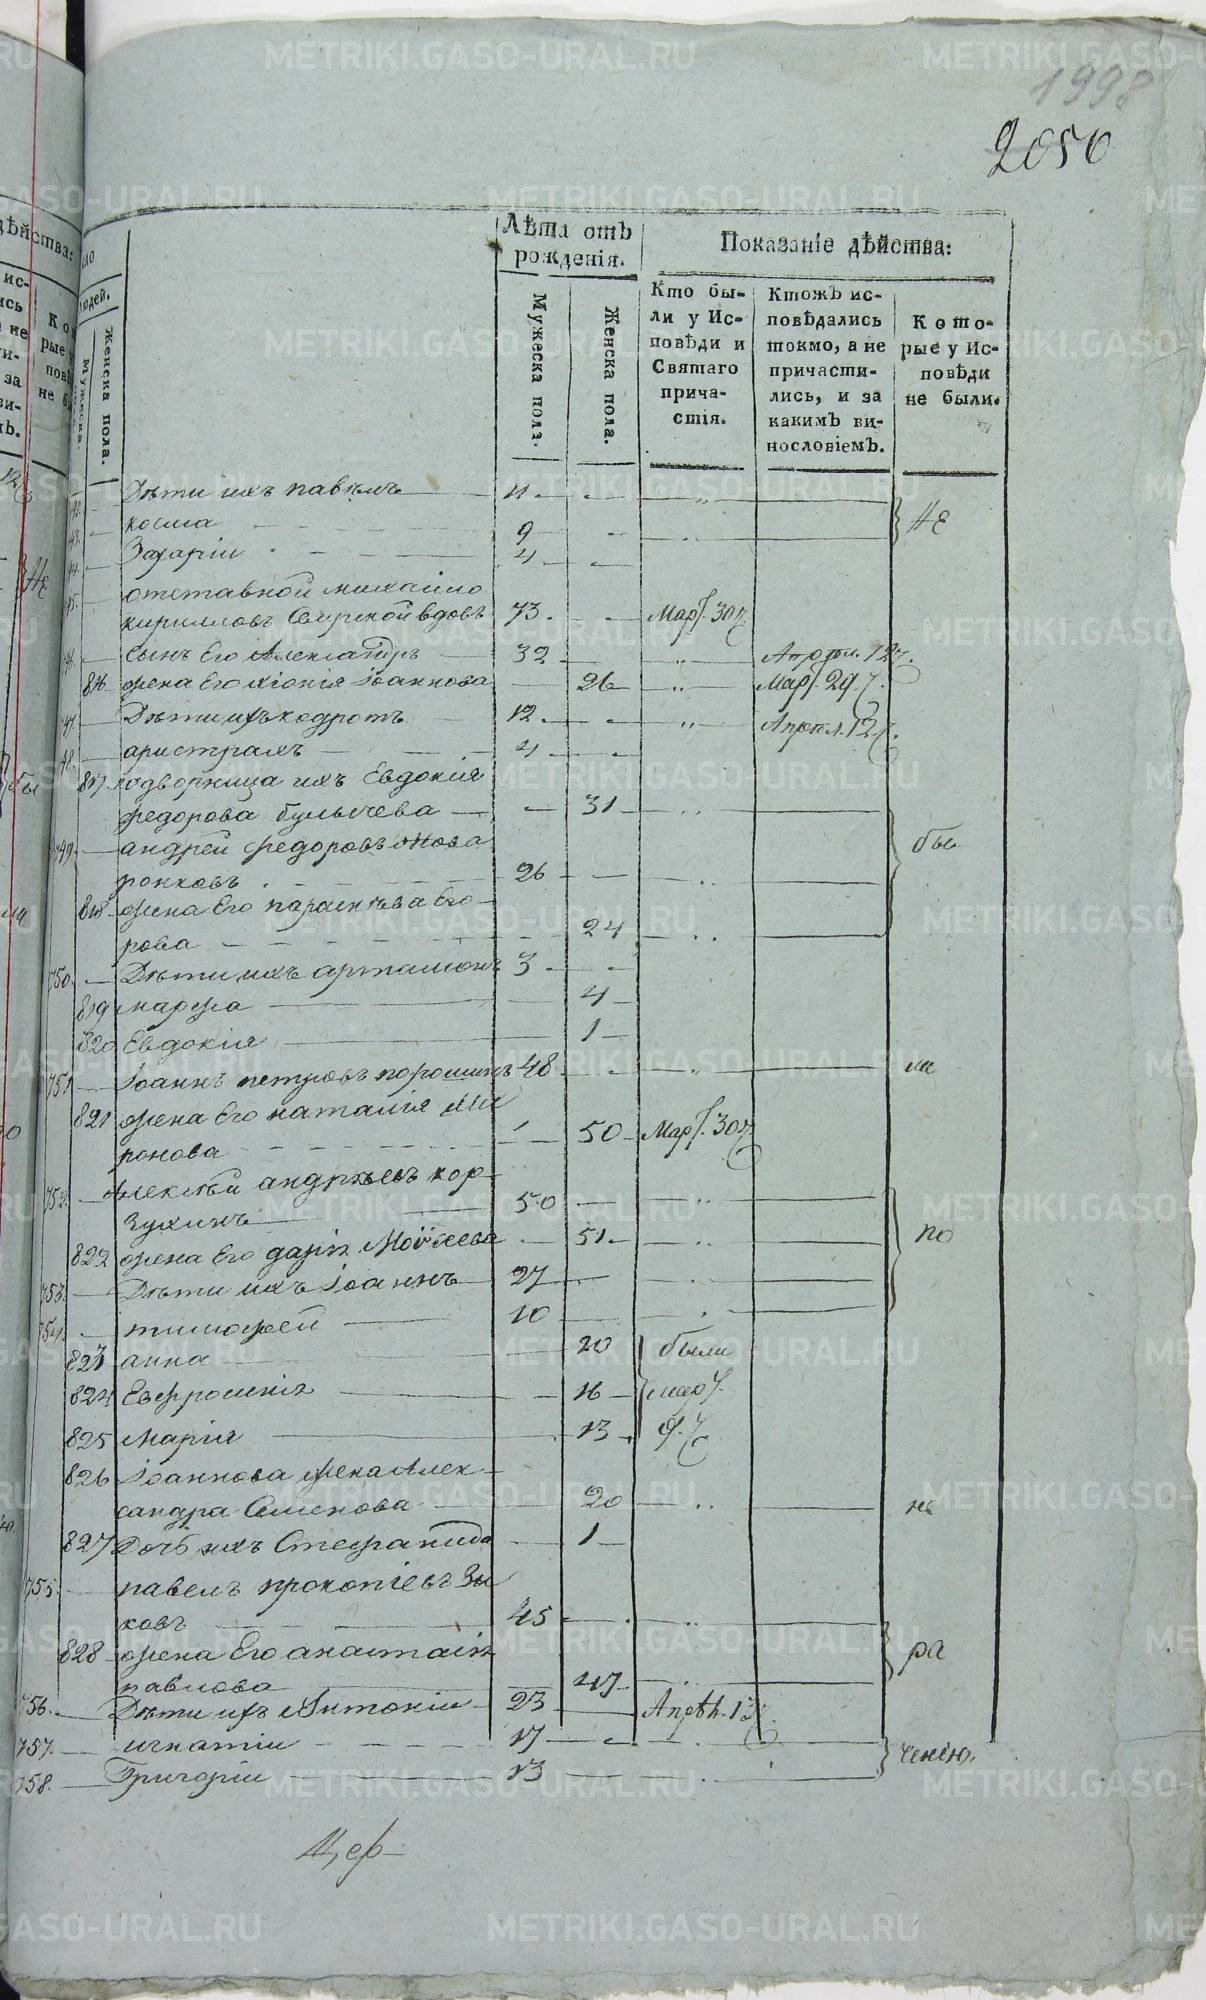 1998
2050
Лѣта отъ рожденія.
Показаніе дѣйства:
людей.
Мужеска.
Женска пола.
Мужеска пола.
Женска пола.
Кто бы-
ли у Ис-
повѣди и
Святаго
прича-
стія.
Ктожъ ис-
повѣдались
токмо, а не
причасти-
лись, и за
какимъ ви-
нословіемъ.
Кото-
рые у Ис-
повѣди
не были.
Дѣти ихъ павелъ 11
косма 9 не
Захарій 4
отставной михайло
кирилловъ вдовъ 73 Мар. 30
сынъ Его Александръ 32 Апрѣл. 12
816 жена Его хіонія Іоаннова 26 Мар. 29
Дѣти ихъ кодротъ 12 Апрѣл. 12
аристрахъ 4
817 подворница ихъ Евдокія
федорова булычева 31
749 андрей федоровъ
26
818 жена Его параскѣва Его-
рова 24
750 Дѣти ихъ артамонъ 3
819 марфа 4
820 Евдокія 1
751 Іоаннъ петровъ порошинъ 48
821 жена Его наталія Ми
ронова 50 Мар. 30
752 Алексѣй андрѣевъ кор-
зухинъ 50
822 жена Его дарія Моѵсеева 51 по
753 Дѣти ихъ Іоаннъ 27
754 тимофей 10
823 анна 20 были
824 Евфросинія 16 мар.
825 марія 13 9
826 Іоаннова жена Алек-
сандра Семенова 20 не
827 Дочь ихъ Стефанида 1
755 павелъ прокопіевъ Зы
ковъ 45
828 жена Его анастасія ра
павлова 47
756 Дѣти ихъ Антоній 23 Апрѣл. 13
757 игнатій 17 ченію.
758 Григорій 13
Цер-